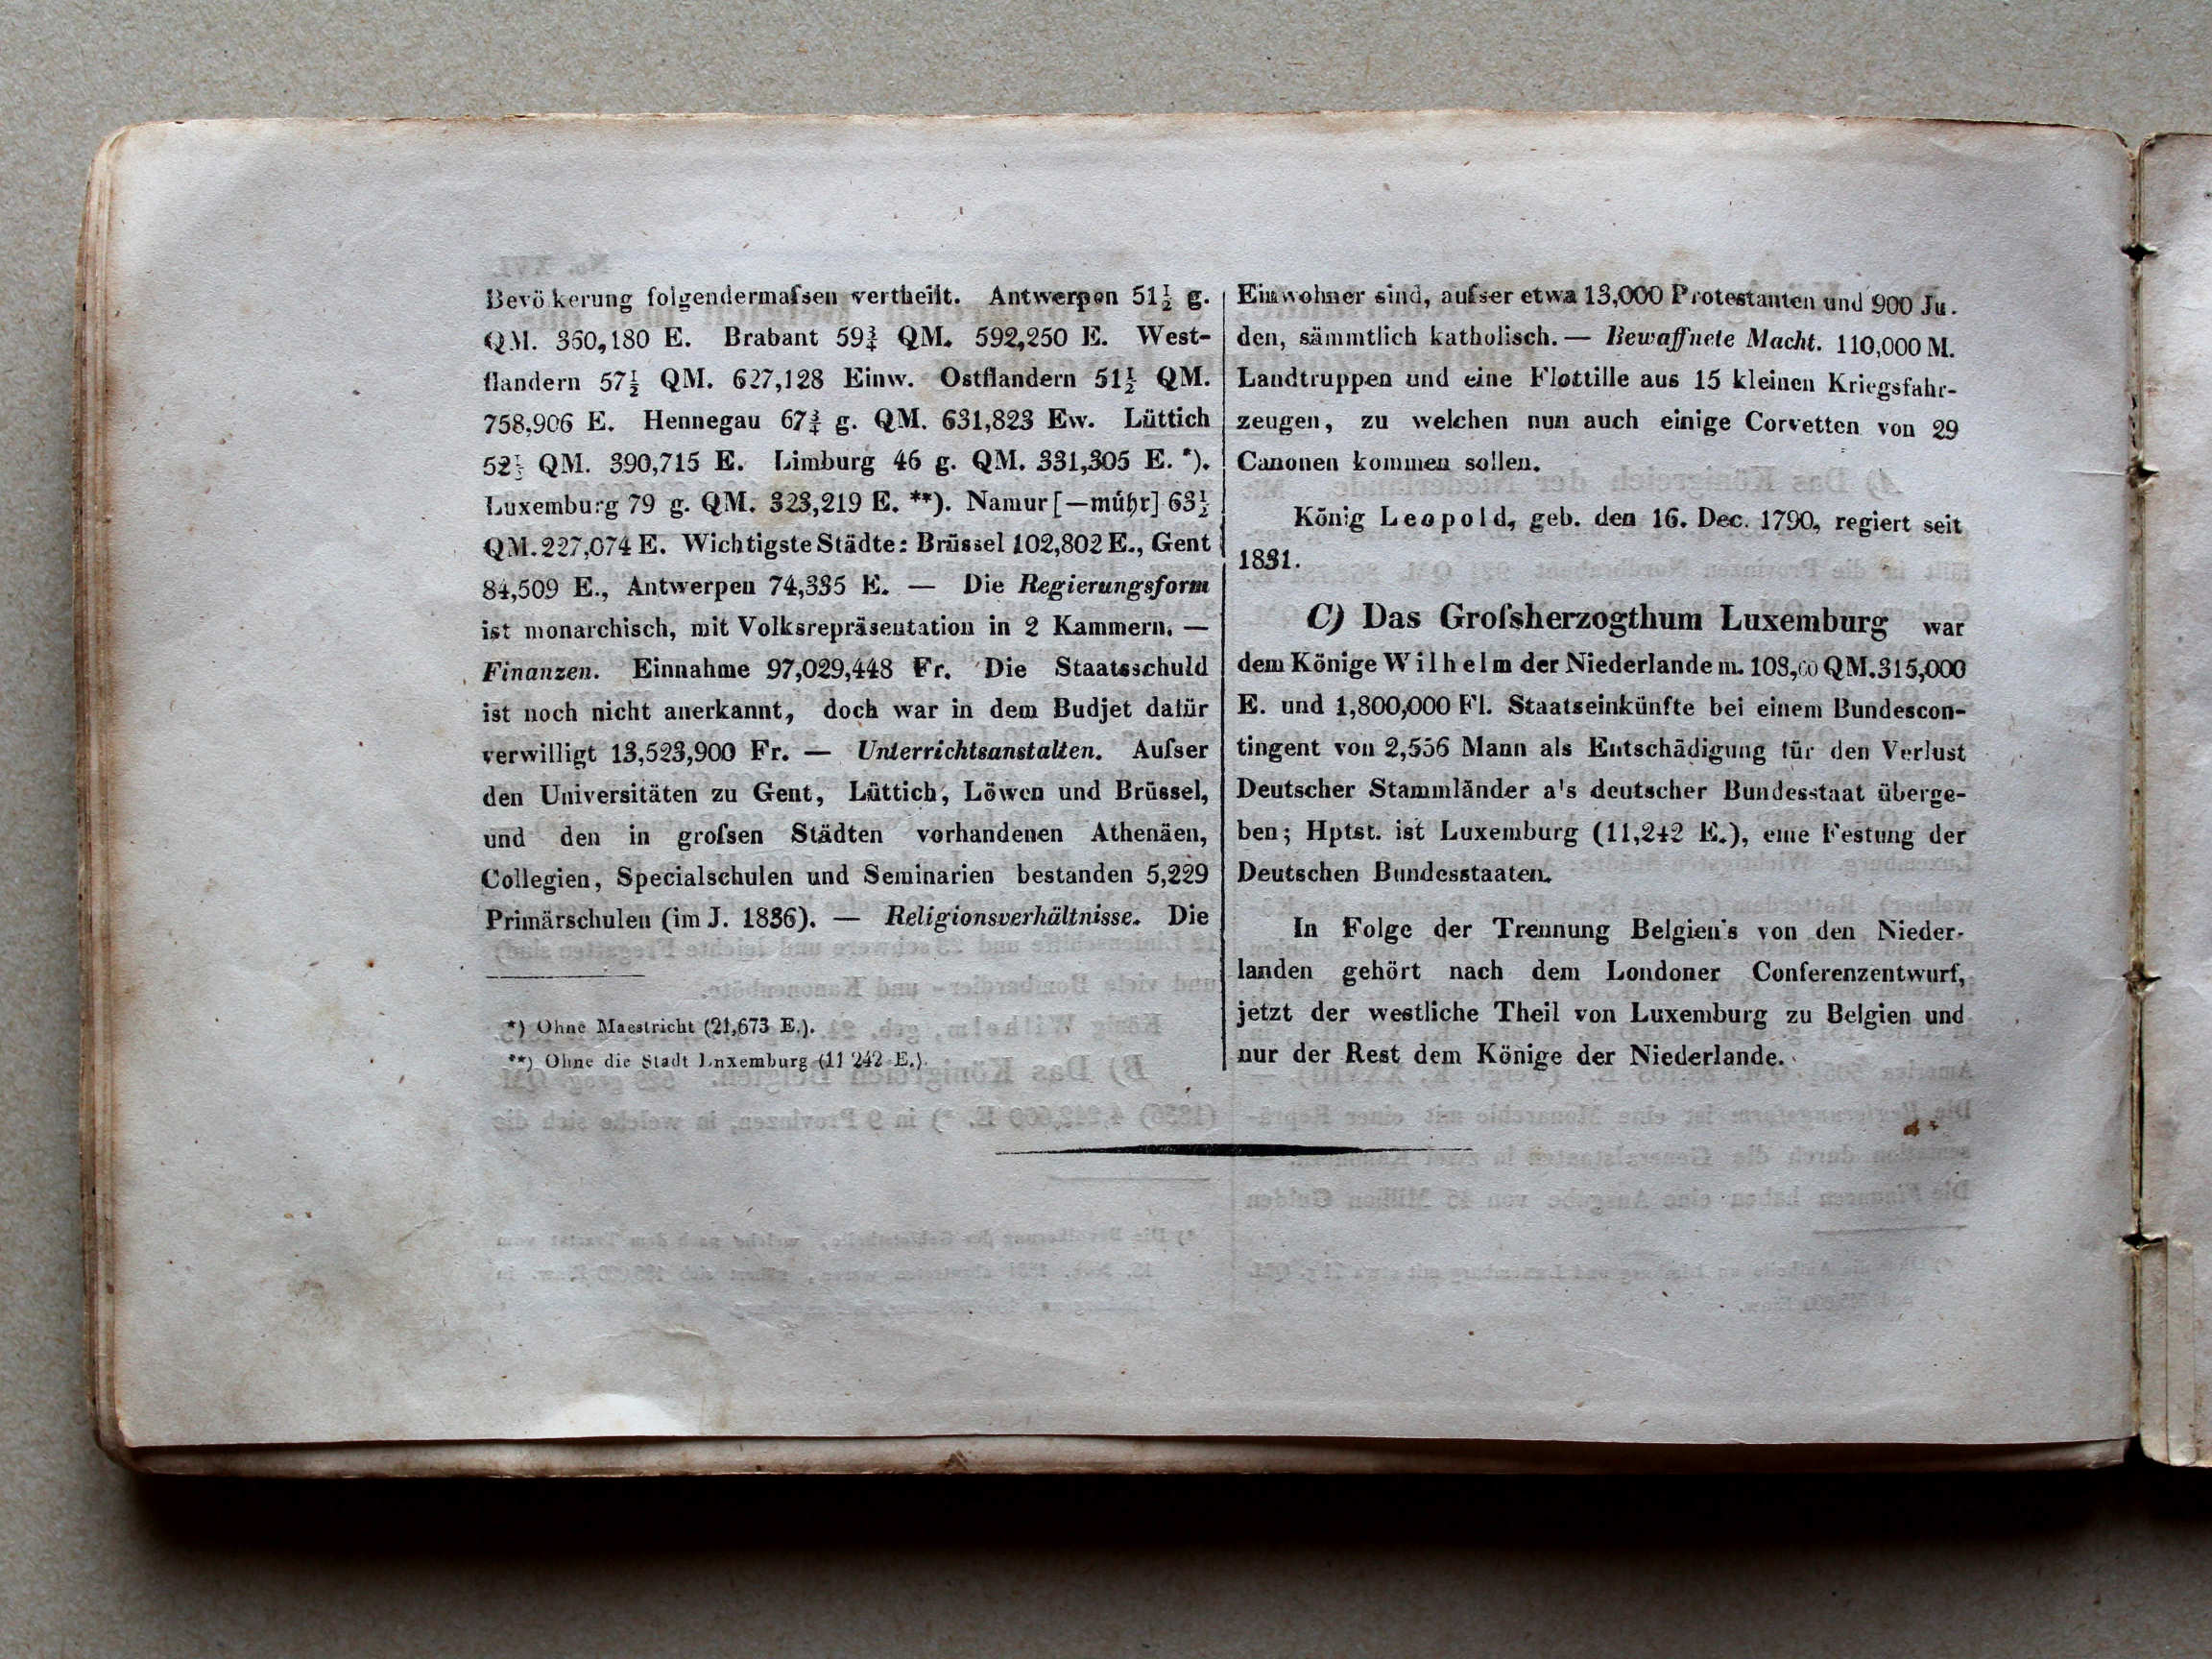 Bevö kerung folgendermaſsen vertheilt. Antwerpen 51½ g.
QM. 360,180 E. Brabant 59¾ QM. 592,250 E. West-
flandern 57½ QM. 627,128 Einw. Ostflandern 51½ QM.
758,906 E. Hennegau 67¾ g. QM. 631,823 Ew. Lüttich
52½ QM. 390,715 E. Limburg 46 g. QM. 331,305 E. *).
Luxemburg 79 g. QM. 323,219 E. **). Namur [—műhr] 63½
QM. 227,074 E. Wichtigste Städte: Brüssel 102,802 E., Gent
84,509 E., Antwerpen 74,335 E. — Die Regierungsform
ist monarchisch, mit Volksrepräsentation in 2 Kammern. —
Finanzen. Einnahme 97,029,448 Fr. Die Staatsschuld
ist noch nicht anerkannt, doch war in dem Budjet dafür
verwilligt 13,523,900 Fr. — Unterrichtsanstalten. Auſser
den Universitäten zu Gent, Lüttich, Löwen und Brüssel,
und den in groſsen Städten vorhandenen Athenäen,
Collegien, Specialschulen und Seminarien bestanden 5,229
Primärschulen (im J. 1836). — Religionsverhältnisse. Die
*) Ohne Maestricht (21,673 E.).
**) Ohne die Stadt Lnxemburg (11 242 E.).
Einwohner sind, auſser etwa 13,000 Protestanten und 900 Ju.
den, sämmtlich katholisch. — Bewaffnete Macht. 110,000 M.
Landtruppen und eine Flottille aus 15 kleinen Kriegsfahr-
zeugen, zu welchen nun auch einige Corvetten von 29
Canonen kommen sollen.
König Leopold, geb. den 16. Dec. 1790, regiert seit
1831.
C) Das Groſsherzogthum Luxemburg war
dem Könige Wilhelm der Niederlande m. 108,60 QM. 315,000
E. und 1,800,000 Fl. Staatseinkünfte bei einem Bundescon-
tingent von 2,556 Mann als Entschädigung für den Verlust
Deutscher Stammländer a's deutscher Bundesstaat überge-
ben; Hptst. ist Luxemburg (11,242 E.), eine Festung der
Deutschen Bundesstaaten.
In Folge der Trennung Belgien's von den Nieder-
landen gehört nach dem Londoner Conferenzentwurf,
jetzt der westliche Theil von Luxemburg zu Belgien und
nur der Rest dem Könige der Niederlande.